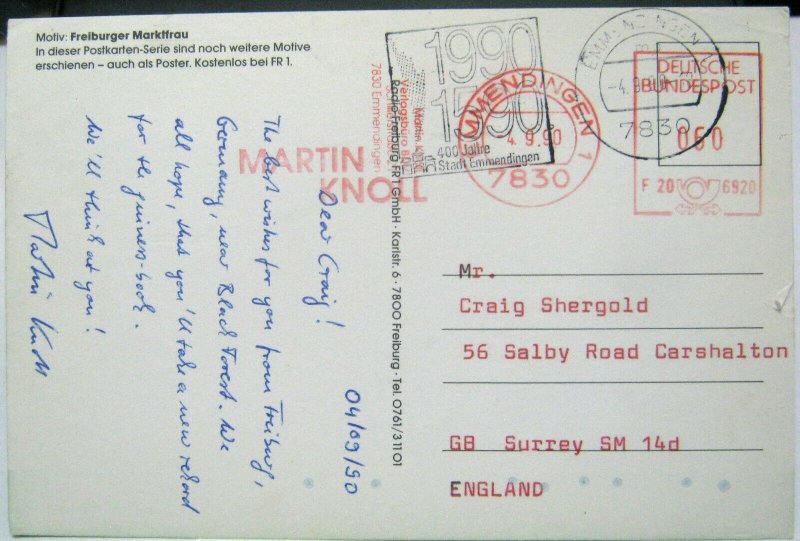 Motiv: Freiburger Marktfrau
In dieser Postkarten-Serie sind noch weitere Motive
erschienen – auch als Poster. Kostenlos bei FR 1.
04/09/90
Dear Craig!
The best wishes for you from Freiburg,
Germany, near Black Forest. We
all hope, that you'll take a new rekord
for the guiness-book.
We'll think at you!
Martin Knoll
Radio Freiburg FR 1 GmbH · Karlstr. 6 · 7800 Freiburg · Tel. 0761/3 11 01
MARTIN
KNOLL
Martin Knoll
Verlagsbüro
7830 Emmendingen
1990
1590
400 Jahre
Stadt Emmendingen
EMMENDINGEN 1
4. 9. 90
7830
EMMENDINGEN
-4.9.90
7830
DEUTSCHE
BUNDESPOST
060
F 20 6920
Mr.
Craig Shergold
56 Salby Road Carshalton
GB Surrey SM 14d
ENGLAND